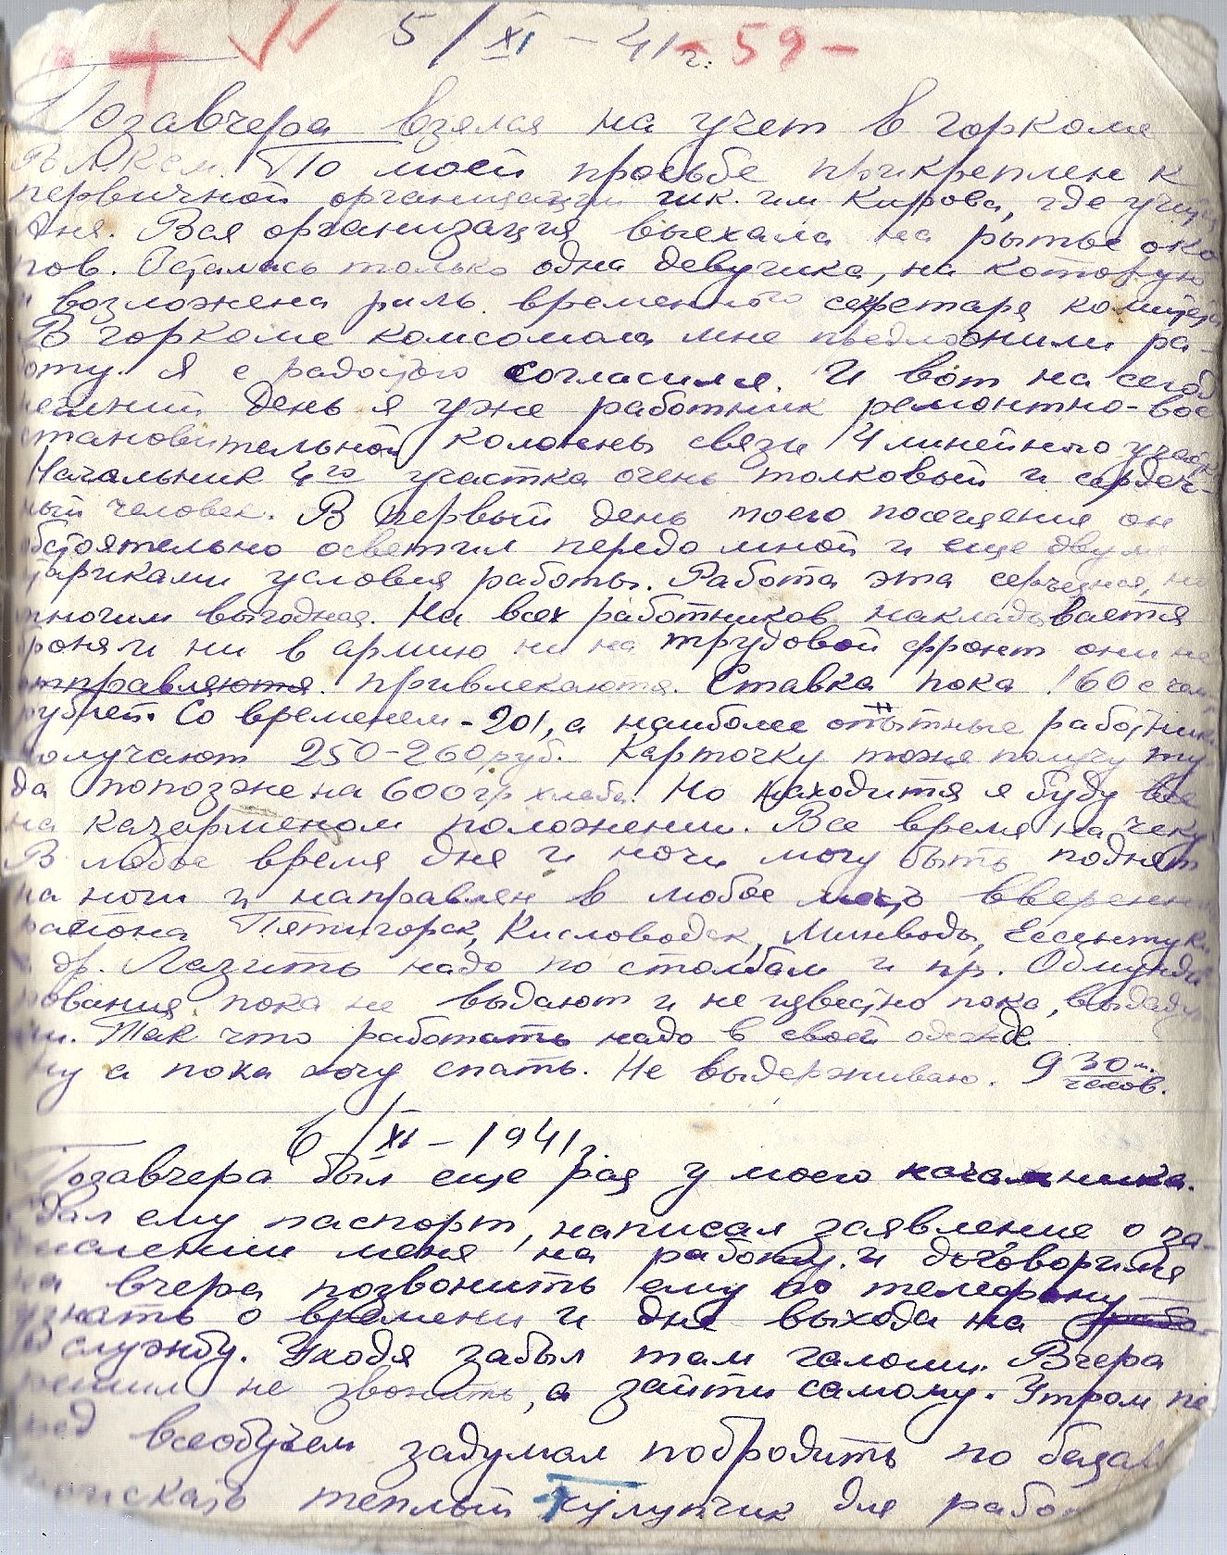 5/XI – 41 г. – 59 –
Позавчера взялся на учет в горкоме
ВЛКСМ. По моей просьбе прикреплен к
первичной организации шк. им Кирова, где учится
Аня. Вся организация выехала на рытье око
пов. Осталась только одна девушка, на которую
и возложена роль временного секретаря комитета
В горкоме комсомола мне предложили ра-
боту. Я с радостью согласился. И вот на сегод
няшний день я уже работник ремонтно-вос
становительной колонны связи 4 линейного участка
Начальник 4го участка очень толковый и сердеч-
ный человек. В первый день моего посещения он
обстоятельно осветил передо мной и еще двумя
стариками условия работы. Работа эта серьезная, но
многим выгодная. На всех работников накладывается
броня и ни в армию ни на трудовой фронт они не
отправляются. привлекаются. Ставка пока 160 с чем
рублей. Со временем – 201, а наиболее опытные работники
получают 250-260 руб. Карточку тоже получу ту
да попозже на 600 гр хлеба. Но находится я буду все
на казарменом положении. Все время на чеку
В любое время дня и ночи могу быть поднят
на ноги и направлен в любое место вверенного
района Пятигорск, Кисловодск, Минводы, Ессентуки
и др. Лазить надо по столбам и пр. Обмунди
рования пока не выдают и не известно пока, выдадут
ли. Так что работать надо в своей одежде
Ну а пока хочу спать. Не выдерживаю. 9 30 м. часов.
6/XI – 1941 г.
Позавчера был еще раз у моего начальника.
Сдал ему паспорт, написал заявление о за-
числении меня на работу и договорился
на вчера позвонить ему по телефону —
узнать о времени и дне выхода на
службу. Уходя забыл там галоши. Вчера
решил не звонить, а зайти самому. Утром пе
ред всеобучем задумал побродить по базару
поискать теплый тулупчик для работы